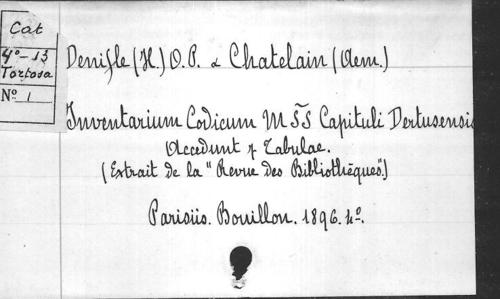 Cat
4º-13
Tortosa
Nº 1
Denifle (H.) O.P. & Chatelain (Aem.)
Inventarium Codicum MSS Capituli Dertusensis
Accedunt 4 Tabulae.
(Extrait de la "Revue des Bibliothèques")
Parisiis. Bouillon. 1896. 4º.